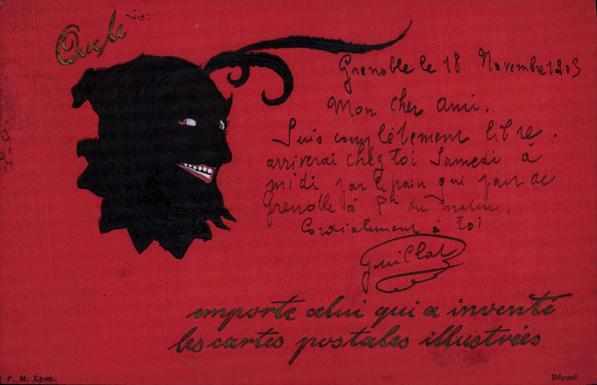 Que le
Grenoble le 18 Novembre 1903
Mon cher ami.
Suis complètement libre.
arriverai chez toi Samedi à
midi par le train qui part de
Grenoble à du matin.
Cordialement à toi
emporte celui qui a inventé
les cartes postales illustrées
P. M. Lyon.
Déposé